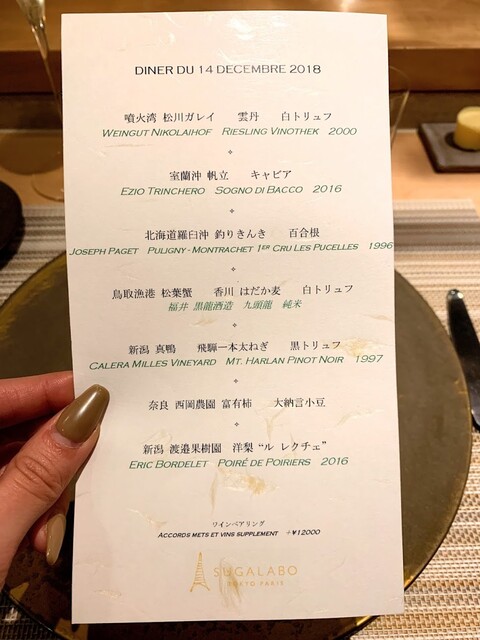 DINER DU 14 DECEMBRE 2018
噴火湾 松川ガレイ 雲丹 白トリュフ
WEINGUT NIKOLAIHOF RIESLING VINOTHEK 2000
室蘭沖 帆立 キャビア
EZIO TRINCHERO SOGNO DI BACCO 2016
北海道羅臼沖 釣りきんき 百合根
JOSEPH PAGET PULIGNY-MONTRACHET 1ER CRU LES PUCELLES 1996
鳥取漁港 松葉蟹 香川 はだか麦 白トリュフ
福井 黒龍酒造 九頭龍 純米
新潟 真鴨 飛騨一本太ねぎ 黒トリュフ
CALERA MILLES VINEYARD MT. HARLAN PINOT NOIR 1997
奈良 西岡農園 富有柿 大納言小豆
新潟 渡邉果樹園 洋梨 “ル レクチェ”
ERIC BORDELET POIRÉ DE POIRIERS 2016
ワインペアリング
ACCORDS METS ET VINS SUPPLEMENT +¥12000
SUGALABO
TOKYO PARIS